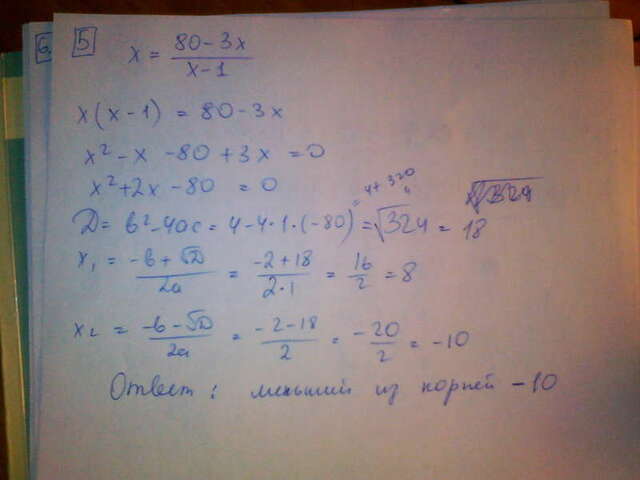 6.
5 x = (80 - 3x)/(x - 1)
x(x - 1) = 80 - 3x
x² - x - 80 + 3x = 0
x² + 2x - 80 = 0
= 4 + 320
√324
D = b² - 4ac = 4 - 4·1·(-80) = √324 = 18
x₁ = (-b + √D)/2a = (-2 + 18)/(2·1) = 16/2 = 8
x₂ = (-b - √D)/2a = (-2 - 18)/2 = -20/2 = -10
Ответ: меньший из корней -10